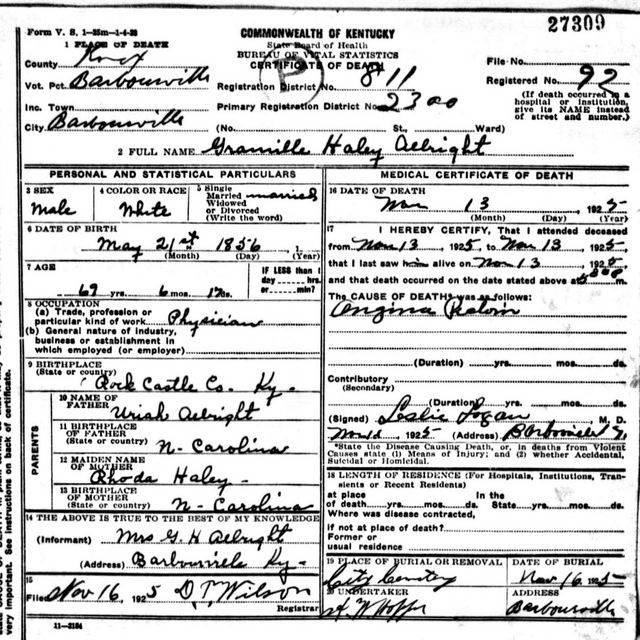 Form V. S. 1—25m—1-4-22
COMMONWEALTH OF KENTUCKY
27309
1 PLACE OF DEATH
State Board of Health
BUREAU OF VITAL STATISTICS
CERTIFICATE OF DEATH
County Knox
File No.
Vot. Pct. Barbourville
Registration District No. 811
Registered No. 92
Inc. Town
Primary Registration District No. 2300
(If death occurred in a hospital or institution, give its NAME instead of street and number.)
City Barbourville (No. St., Ward)
2 FULL NAME Granville Haley Albright
PERSONAL AND STATISTICAL PARTICULARS
3 SEX
Male
4 COLOR OR RACE
White
5 Single
Married married
Widowed
or Divorced
(Write the word)
6 DATE OF BIRTH
May 21st 1856, 1
(Month) (Day) (Year)
7 AGE
69 yrs. 6 mos. ds.
IF LESS than 1
day hrs.
or min?
8 OCCUPATION
(a) Trade, profession or
particular kind of work Physician
(b) General nature of industry,
business or establishment in
which employed (or employer)
9 BIRTHPLACE
(State or country)
Rock Castle Co. Ky-
PARENTS
10 NAME OF
FATHER
Uriah Albright
11 BIRTHPLACE
OF FATHER
(State or country) N- Carolina
12 MAIDEN NAME
OF MOTHER
Rhoda Haley-
13 BIRTHPLACE
OF MOTHER
(State or country) N- Carolina
14 THE ABOVE IS TRUE TO THE BEST OF MY KNOWLEDGE
(Informant) Mrs G. H Albright
(Address) Barbourville Ky-
15
Filed Nov 16, 1925 D. T. Wilson
Registrar
11—3184
MEDICAL CERTIFICATE OF DEATH
16 DATE OF DEATH
Nov 13, 1925
(Month) (Day) (Year)
17 I HEREBY CERTIFY, That I attended deceased
from Nov 13, 1925, to Nov 13, 1925,
that I last saw him alive on Nov 13, 1925,
and that death occurred on the date stated above at
The CAUSE OF DEATH* was as follows:
Angina
(Duration) yrs. mos. ds.
Contributory
(Secondary)
(Duration) yrs. mos. ds.
(Signed) Leslie Logan, M. D.
1925 (Address) Barbourville
*State the Disease Causing Death, or, in deaths from Violent
Causes state (1) Means of Injury; and (2) whether Accidental,
Suicidal or Homicidal.
18 LENGTH OF RESIDENCE (For Hospitals, Institutions, Transients or Recent Residents)
at place In the
of death yrs. mos. ds. State yrs. mos. ds.
Where was disease contracted,
if not at place of death?
Former or
usual residence
19 PLACE OF BURIAL OR REMOVAL
City Cemetery
DATE OF BURIAL
Nov 16 1925
20 UNDERTAKER
ADDRESS
Barbourville
very important. See instructions on back of certificate.